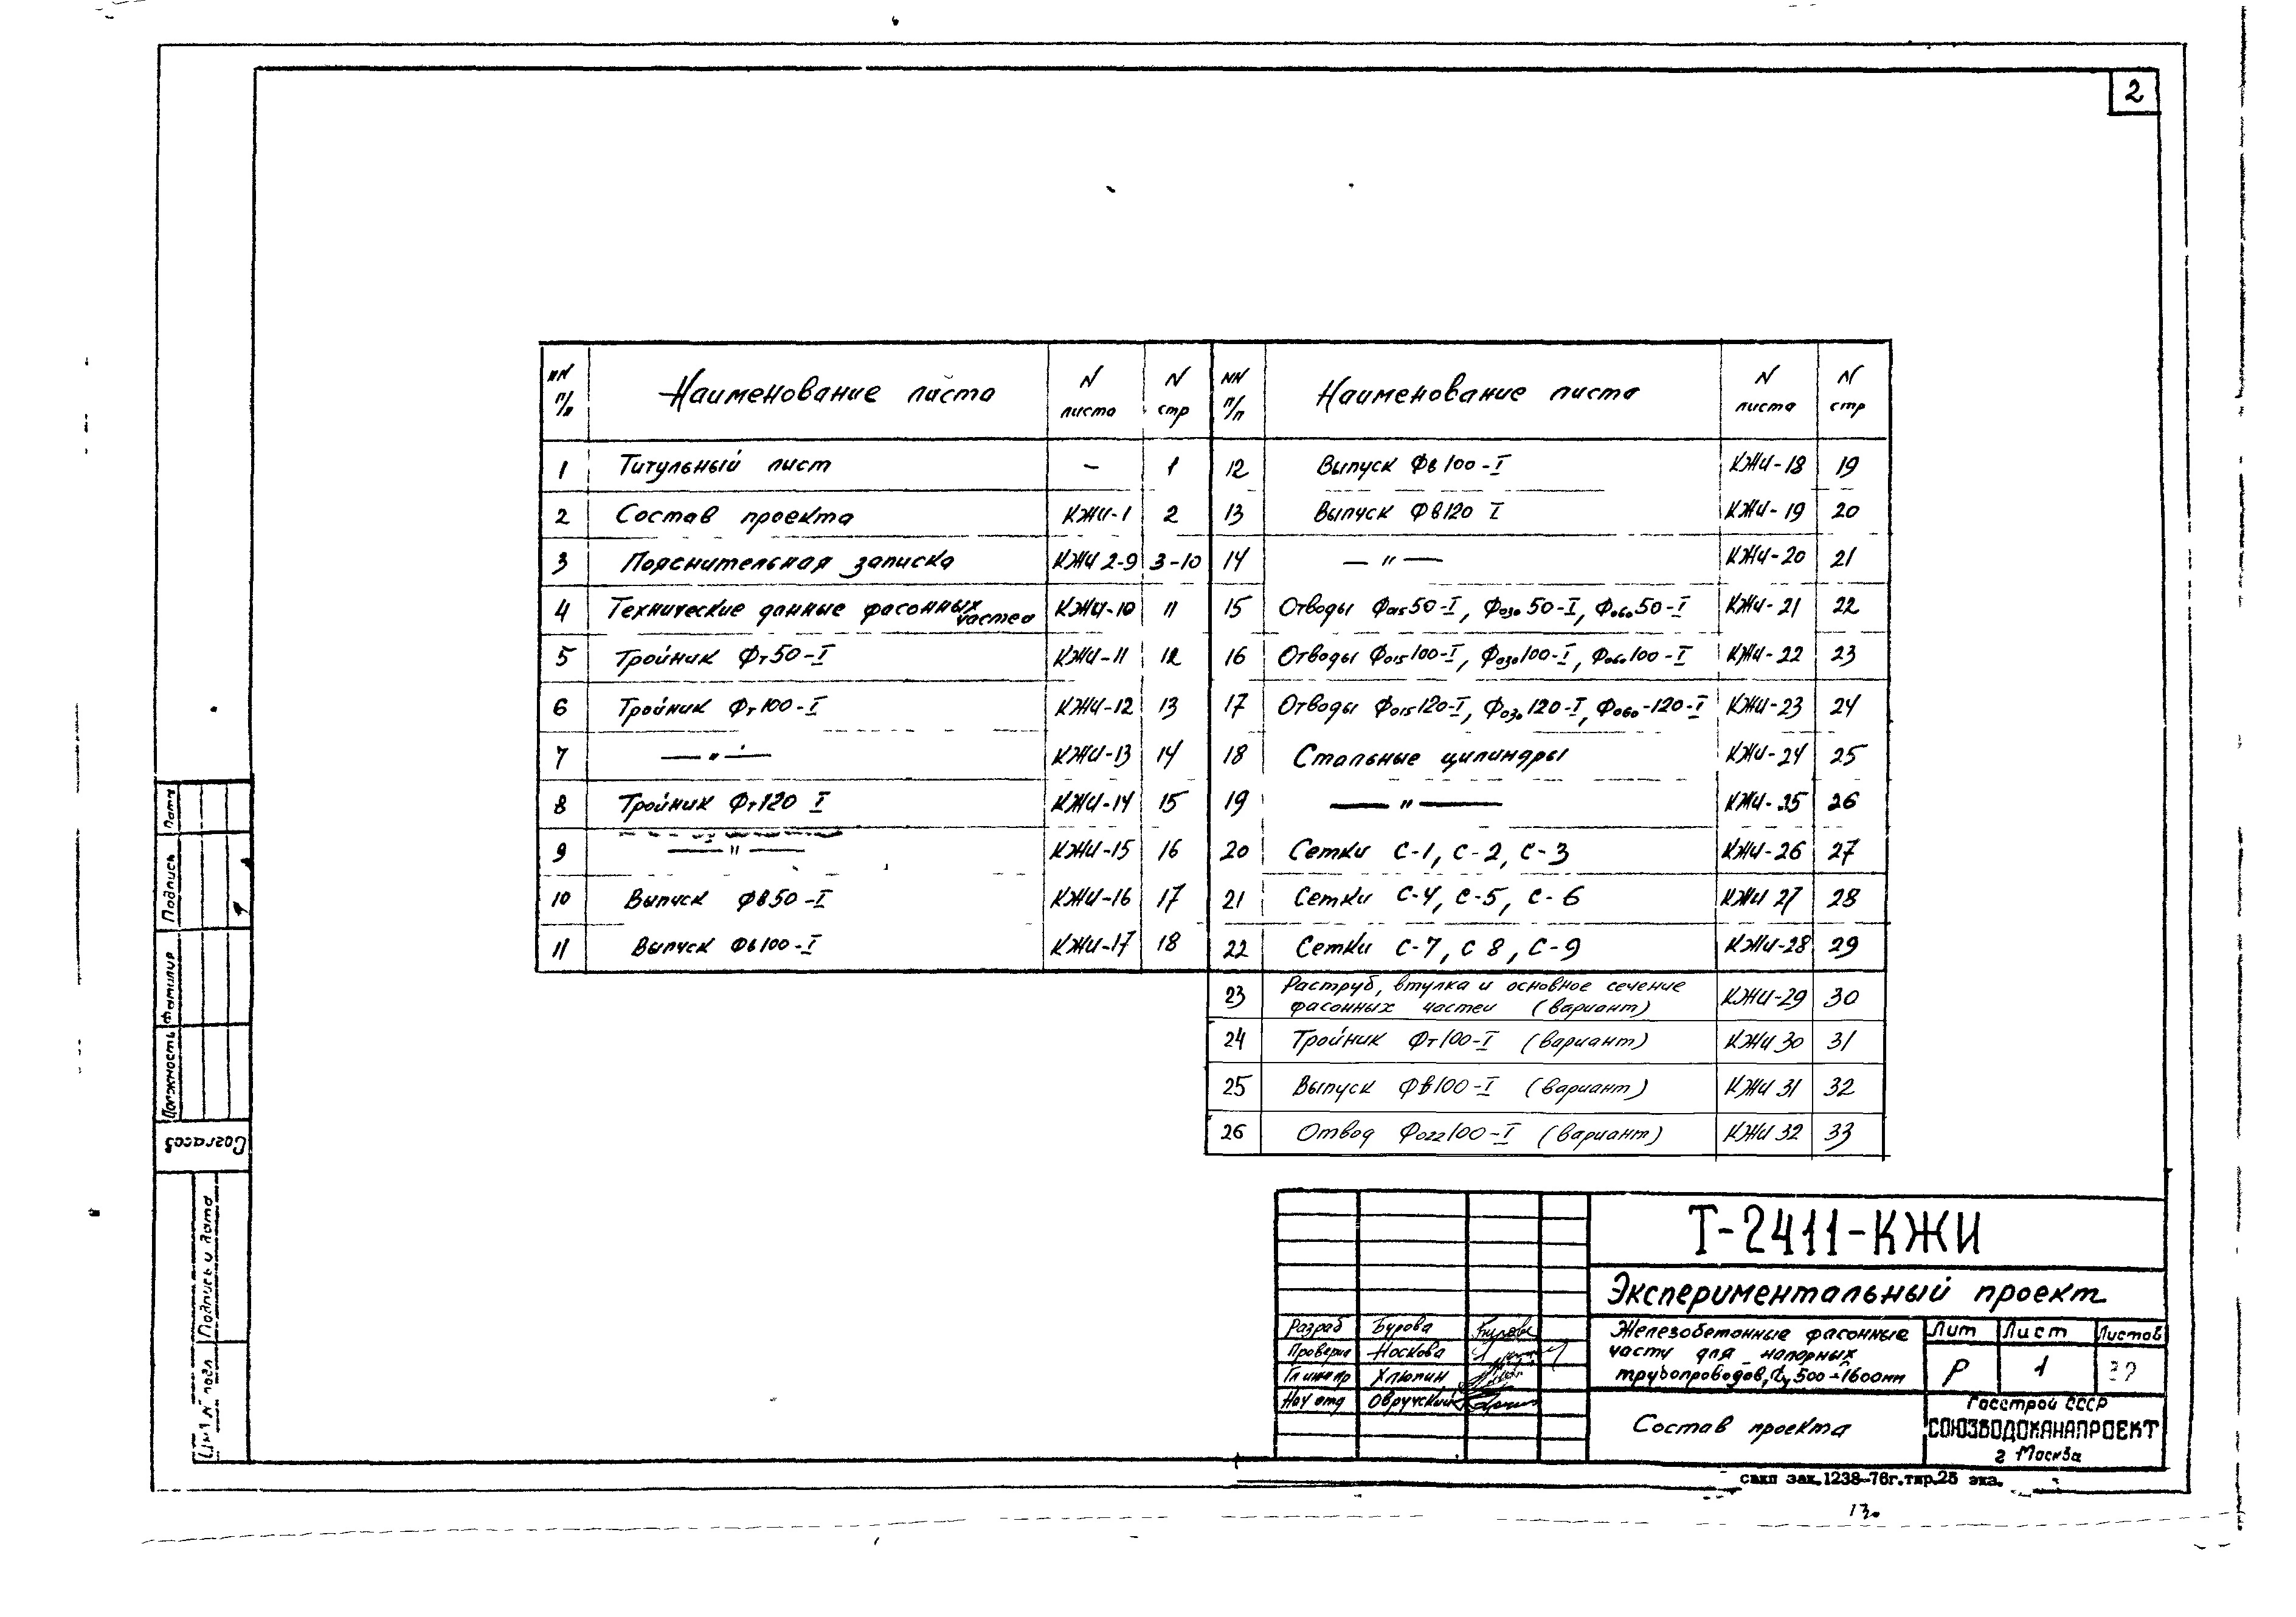 2
NN п/п Наименование листа N листа N стр
1 Титульный лист – 1
2 Состав проекта КЖИ-1 2
3 Пояснительная записка КЖИ 2-9 3-10
4 Технические данные фасонных частей КЖИ-10 11
5 Тройник Фт50-I КЖИ-11 12
6 Тройник Фт100-I КЖИ-12 13
7 —"— КЖИ-13 14
8 Тройник Фт120 I КЖИ-14 15
9 —"— КЖИ-15 16
10 Выпуск Фв50-I КЖИ-16 17
11 Выпуск Фв100-I КЖИ-17 18
NN п/п Наименование листа N листа N стр
12 Выпуск Фв100-I КЖИ-18 19
13 Выпуск Фв120 I КЖИ-19 20
14 —"— КЖИ-20 21
15 Отводы Фо15 50-I, Фо30 50-I, Фо60 50-I КЖИ-21 22
16 Отводы Фо15 100-I, Фо30 100-I, Фо60 100-I КЖИ-22 23
17 Отводы Фо15 120-I, Фо30 120-I, Фо60-120-I КЖИ-23 24
18 Стальные цилиндры КЖИ-24 25
19 —"— КЖИ-25 26
20 Сетки С-1, С-2, С-3 КЖИ-26 27
21 Сетки С-4, С-5, С-6 КЖИ 27 28
22 Сетки С-7, С 8, С-9 КЖИ-28 29
23 Раструб, втулка и основное сечение фасонных частей (вариант) КЖИ-29 30
24 Тройник Фт100-I (вариант) КЖИ 30 31
25 Выпуск Фв100-I (вариант) КЖИ 31 32
26 Отвод Фо22 100-I (вариант) КЖИ 32 33
Дата
Подпись
Фамилия
Должность
Согласов
Подпись и дата
Инв N подл
Т-2411-КЖИ
Экспериментальный проект
Разраб Бурова
Проверил Носкова
Гл инж пр Хлюпин
Нач отд Овручский
Железобетонные фасонные
части для напорных
трубопроводов, Фу 500-1600мм
Лит Лист Листов
Р 1
Состав проекта
Госстрой СССР
СОЮЗВОДОКАНАЛПРОЕКТ
г Москва
свкп зак.1238-76г.тир.25 экз.